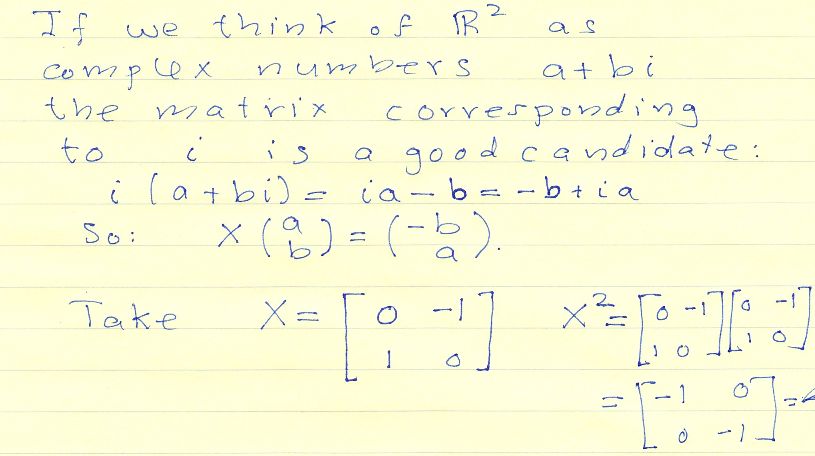 If we think of ℝ² as
complex numbers a+bi
the matrix corresponding
to i is a good candidate:
i(a+bi) = ia-b = -b+ia
So: X(a b) = (-b a).
Take X = [0 -1 1 0] X² = [0 -1 1 0][0 -1 1 0]
= [-1 0 0 -1] =